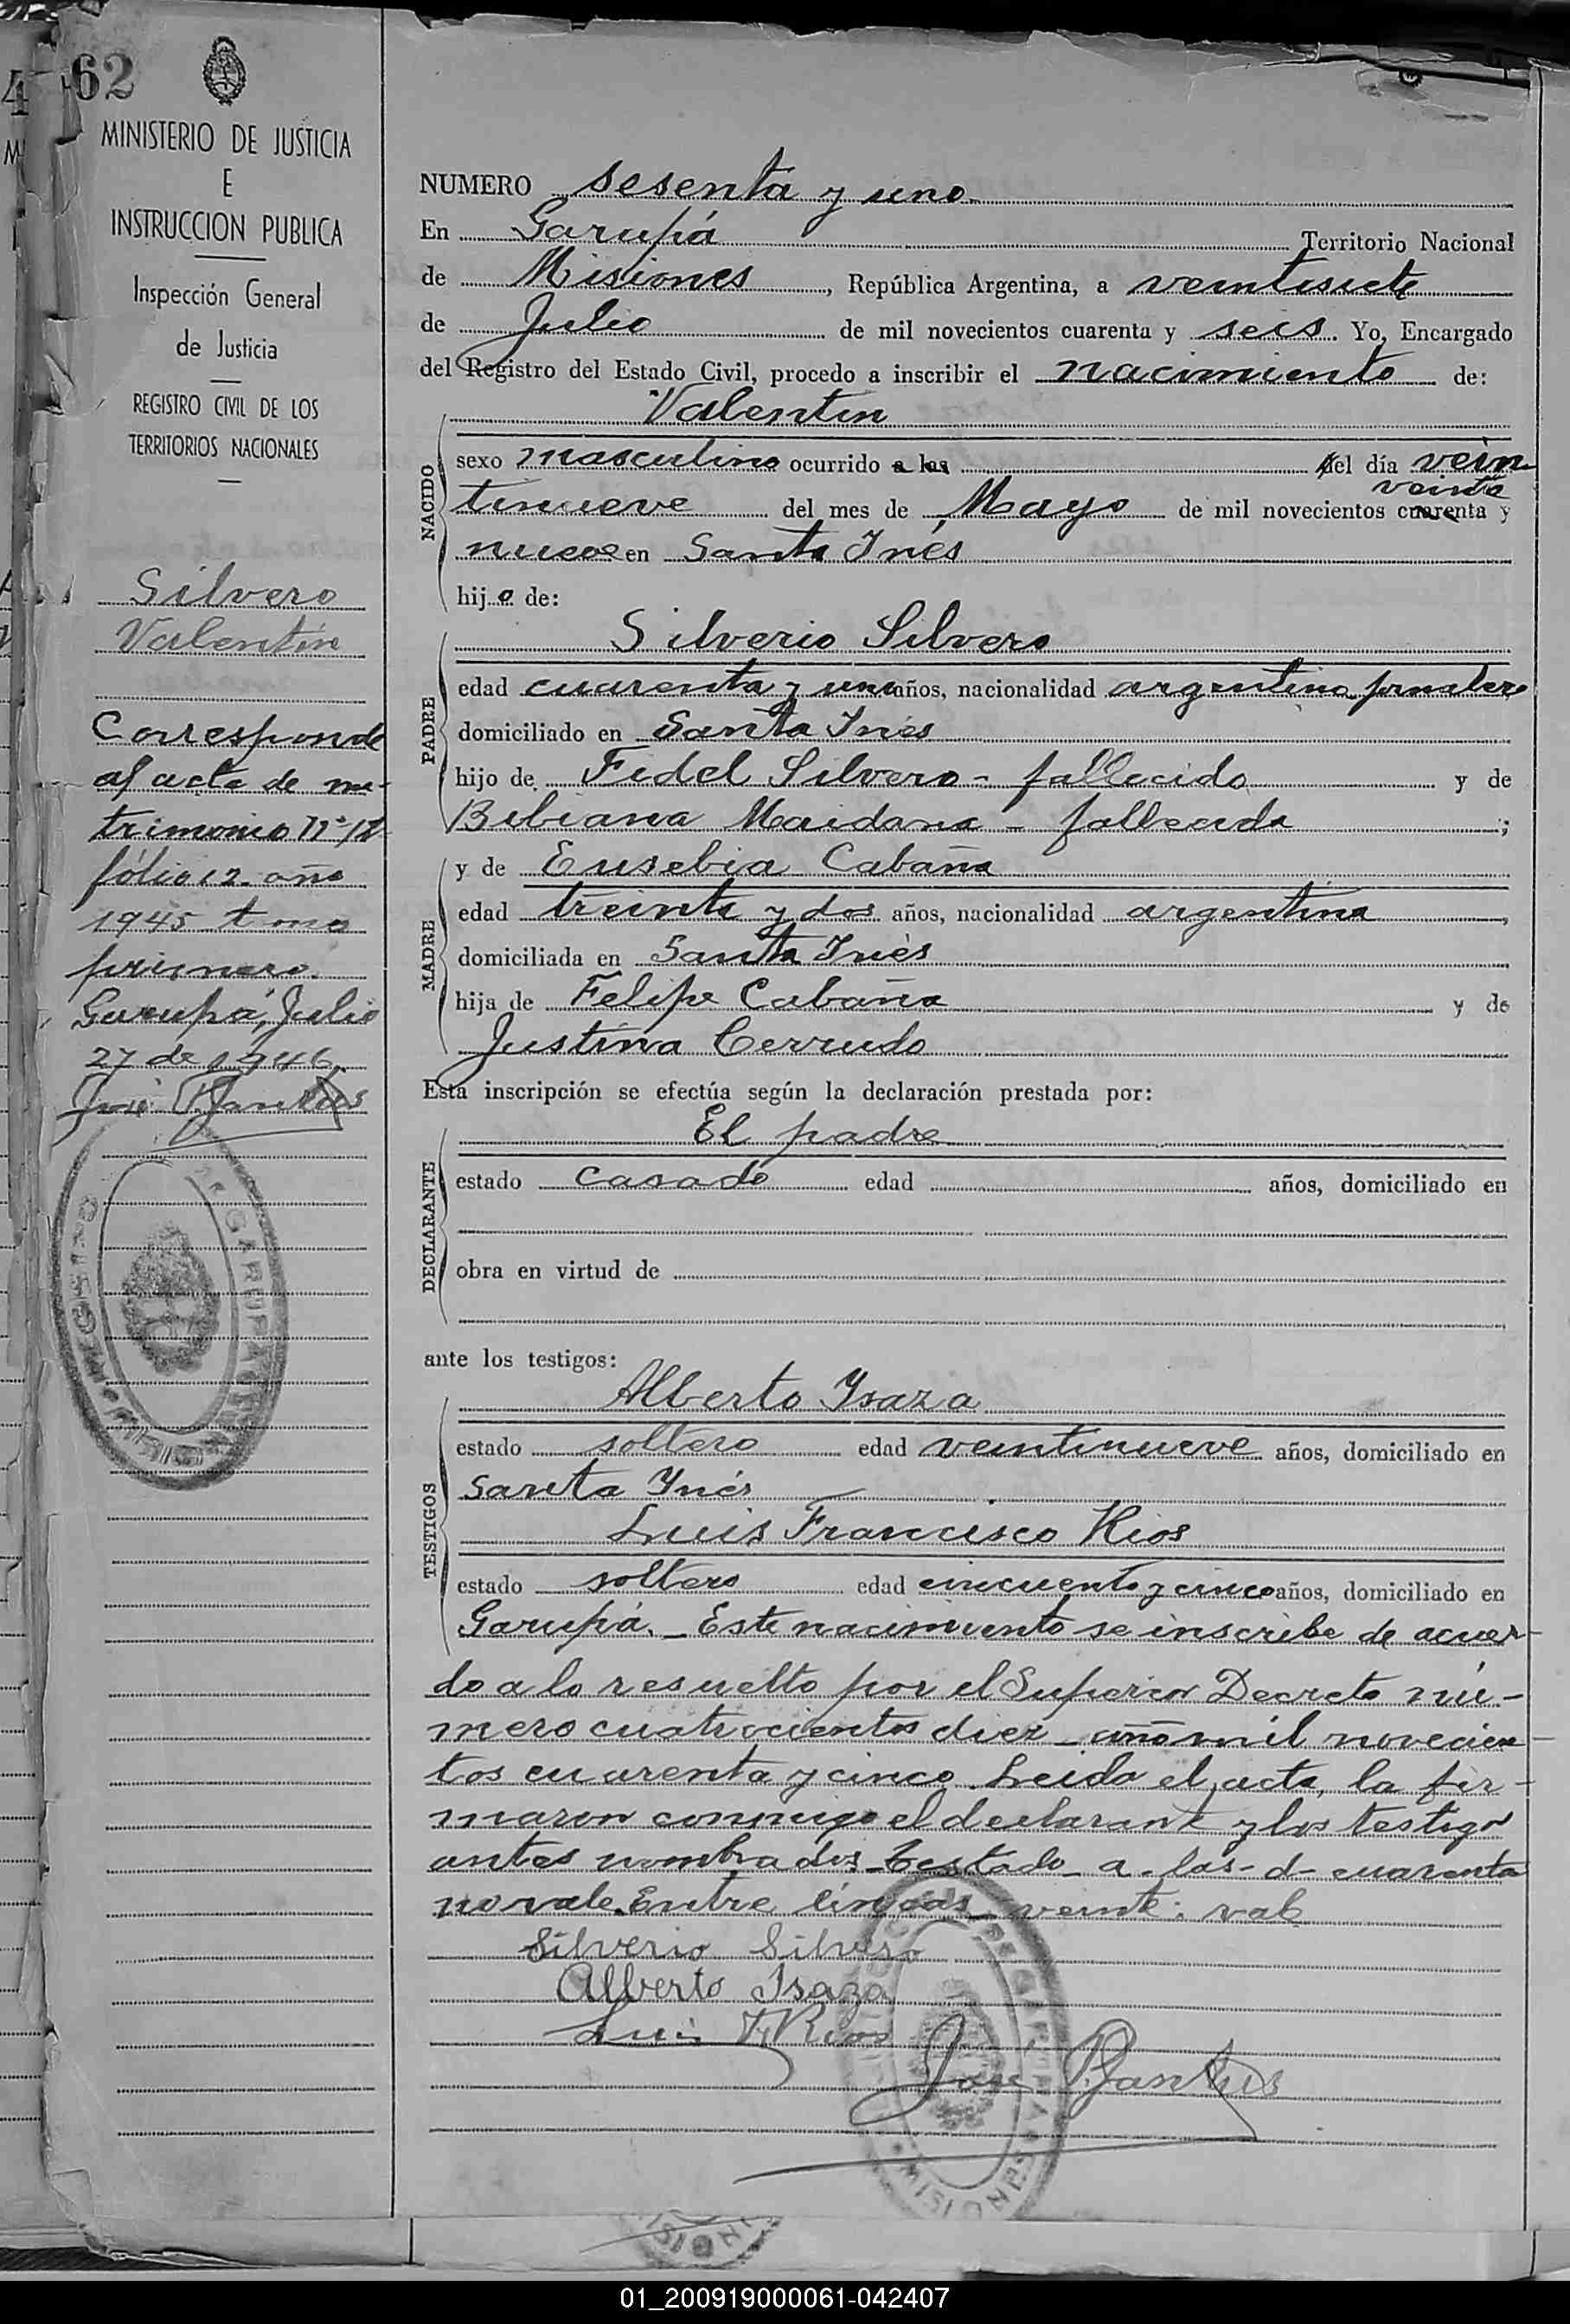 62
MINISTERIO DE JUSTICIA
E
INSTRUCCION PUBLICA
Inspección General
de Justicia
REGISTRO CIVIL DE LOS
TERRITORIOS NACIONALES
Silvero
Valentín
Corresponde
al acta de ma-
trimonio Nº 12
fólio 12 año
1945 tomo
primero.
Garupá, Julio
27 de 1946
NUMERO sesenta y uno
En Garupá Territorio Nacional
de Misiones, República Argentina, a veintisiete
de Julio de mil novecientos cuarenta y seis. Yo, Encargado
del Registro del Estado Civil, procedo a inscribir el nacimiento de:
Valentín
NACIDO
sexo masculino ocurrido a las del día vein
veinte
tinueve del mes de Mayo de mil novecientos cuarenta y
nueve en Santa Inés
hijo de:
Silverio Silvero
PADRE
edad cuarenta y un años, nacionalidad argentino jornalero
domiciliado en Santa Inés
hijo de Fidel Silvero - fallecido y de
Bibiana Maidana - fallecida;
y de Eusebia Cabaña
MADRE
edad treinta y dos años, nacionalidad argentina,
domiciliada en Santa Inés
hija de Felipe Cabaña y de
Justina Cerrudo
Esta inscripción se efectúa según la declaración prestada por:
El padre
DECLARANTE
estado casado edad años, domiciliado en
obra en virtud de
ante los testigos:
Alberto Ysaza
TESTIGOS
estado soltero edad veintinueve años, domiciliado en
Santa Ynés
Luis Francisco Rios
estado soltero edad cincuenta y cinco años, domiciliado en
Garupá. - Este nacimiento se inscribe de acuer-
do a lo resuelto por el Superior Decreto nú-
mero cuatrocientos diez - año mil novecien-
tos cuarenta y cinco. Leida el acta, la fir-
maron conmigo el declarante y los testigos
antes nombrados. Testado - a - las - d - cuarenta
no vale. Entre líneas - veinte: vale
Silverio Silvero
Alberto Isaza
Luis F. Rios
01_200919000061-042407